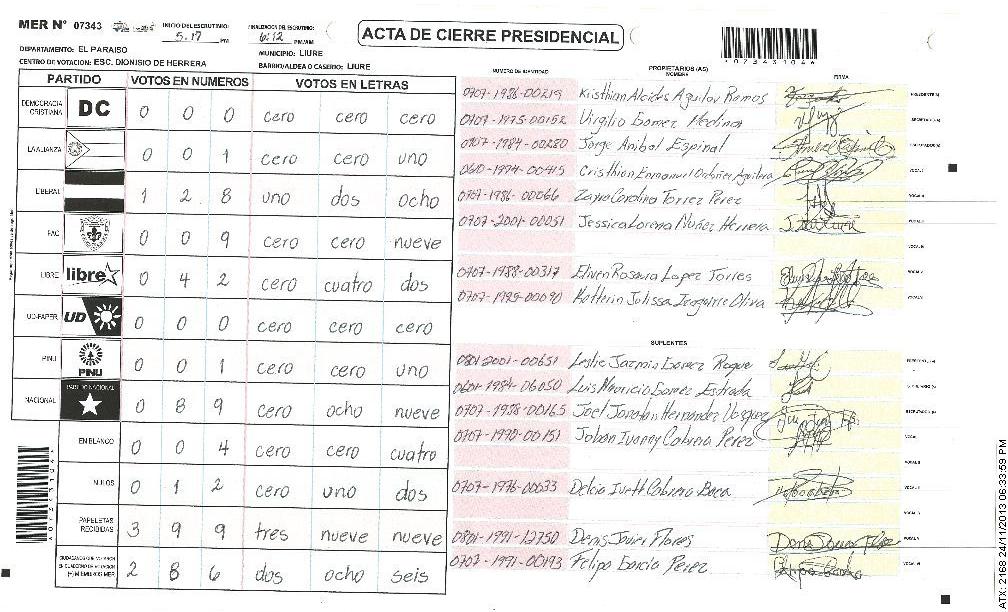 MER N° 07343
INICIO DEL ESCRUTINIO: 5.17 PM
FINALIZACION DEL ESCRUTINIO: 6:12 PM/AM
ACTA DE CIERRE PRESIDENCIAL
DEPARTAMENTO: EL PARAISO
MUNICIPIO: LIURE
CENTRO DE VOTACION: ESC. DIONISIO DE HERRERA
BARRIO/ALDEA O CASERIO: LIURE
PARTIDO VOTOS EN NUMEROS VOTOS EN LETRAS
DEMOCRACIA CRISTIANA DC 0 0 0 cero cero cero
LA ALIANZA 0 0 1 cero cero uno
LIBERAL 1 2 8 uno dos ocho
PAC 0 0 9 cero cero nueve
LIBRE libre 0 4 2 cero cuatro dos
UD-FAPER UD 0 0 0 cero cero cero
PINU PINU 0 0 1 cero cero uno
NACIONAL PARTIDO NACIONAL 0 8 9 cero ocho nueve
EN BLANCO 0 0 4 cero cero cuatro
NULOS 0 1 2 cero uno dos
PAPELETAS RECIBIDAS 3 9 9 tres nueve nueve
(+) MIEMBROS MER 2 8 6 dos ocho seis
NUMERO DE IDENTIDAD PROPIETARIOS (AS) NOMBRE FIRMA
0707-1986-00219 Kristhian Alcides Aguilar Ramos
0707-1975-00152 Virgilio Gomez Medina
0707-1984-00280 Jorge Anibal Espinal
0610-1994-00415 Cristhian Enmanuel Ordoñez Aguilera
0707-1986-00066 Zayra Carolina Torrez Perez
0707-2001-00051 Jessica Lorena Nuñez Herrera
0707-1988-00317 Eliven Rosaura Lopez Torres
0707-1995-00090 Katterin Julissa Izaguirre Oliva
SUPLENTES
0801-2001-00651 Leslie Jazmin Gomez Roque
0601-1984-06050 Luis Mauricio Gomez Estrada
0707-1988-00165 Joel Jonatan Hernandez Vasquez
0707-1990-00151 Johan Ivanny Cabrera Perez
0707-1976-00033 Delcia Ivett Cabrera Baca
0801-1991-12750 Denis Javier Flores
0707-1991-00193 Felipe Garcia Perez
07343104
ATX: 2168 24/11/2013 06:33:59 PM